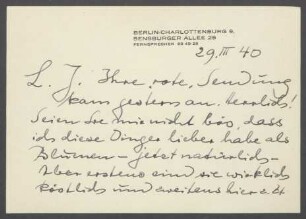 BERLIN-CHARLOTTENBURG 9,
SENSBURGER ALLEE 28
FERNSPRECHER
29. III 40
L. J. Ihre rote Sendung
kam gestern an. herrlich!
Seien Sie mir nicht bös, dass
ich diese Dinger lieber habe als
Blumen – jetzt natürlich –
Aber erstens sind sie wirklich
köstlich und zweitens hier